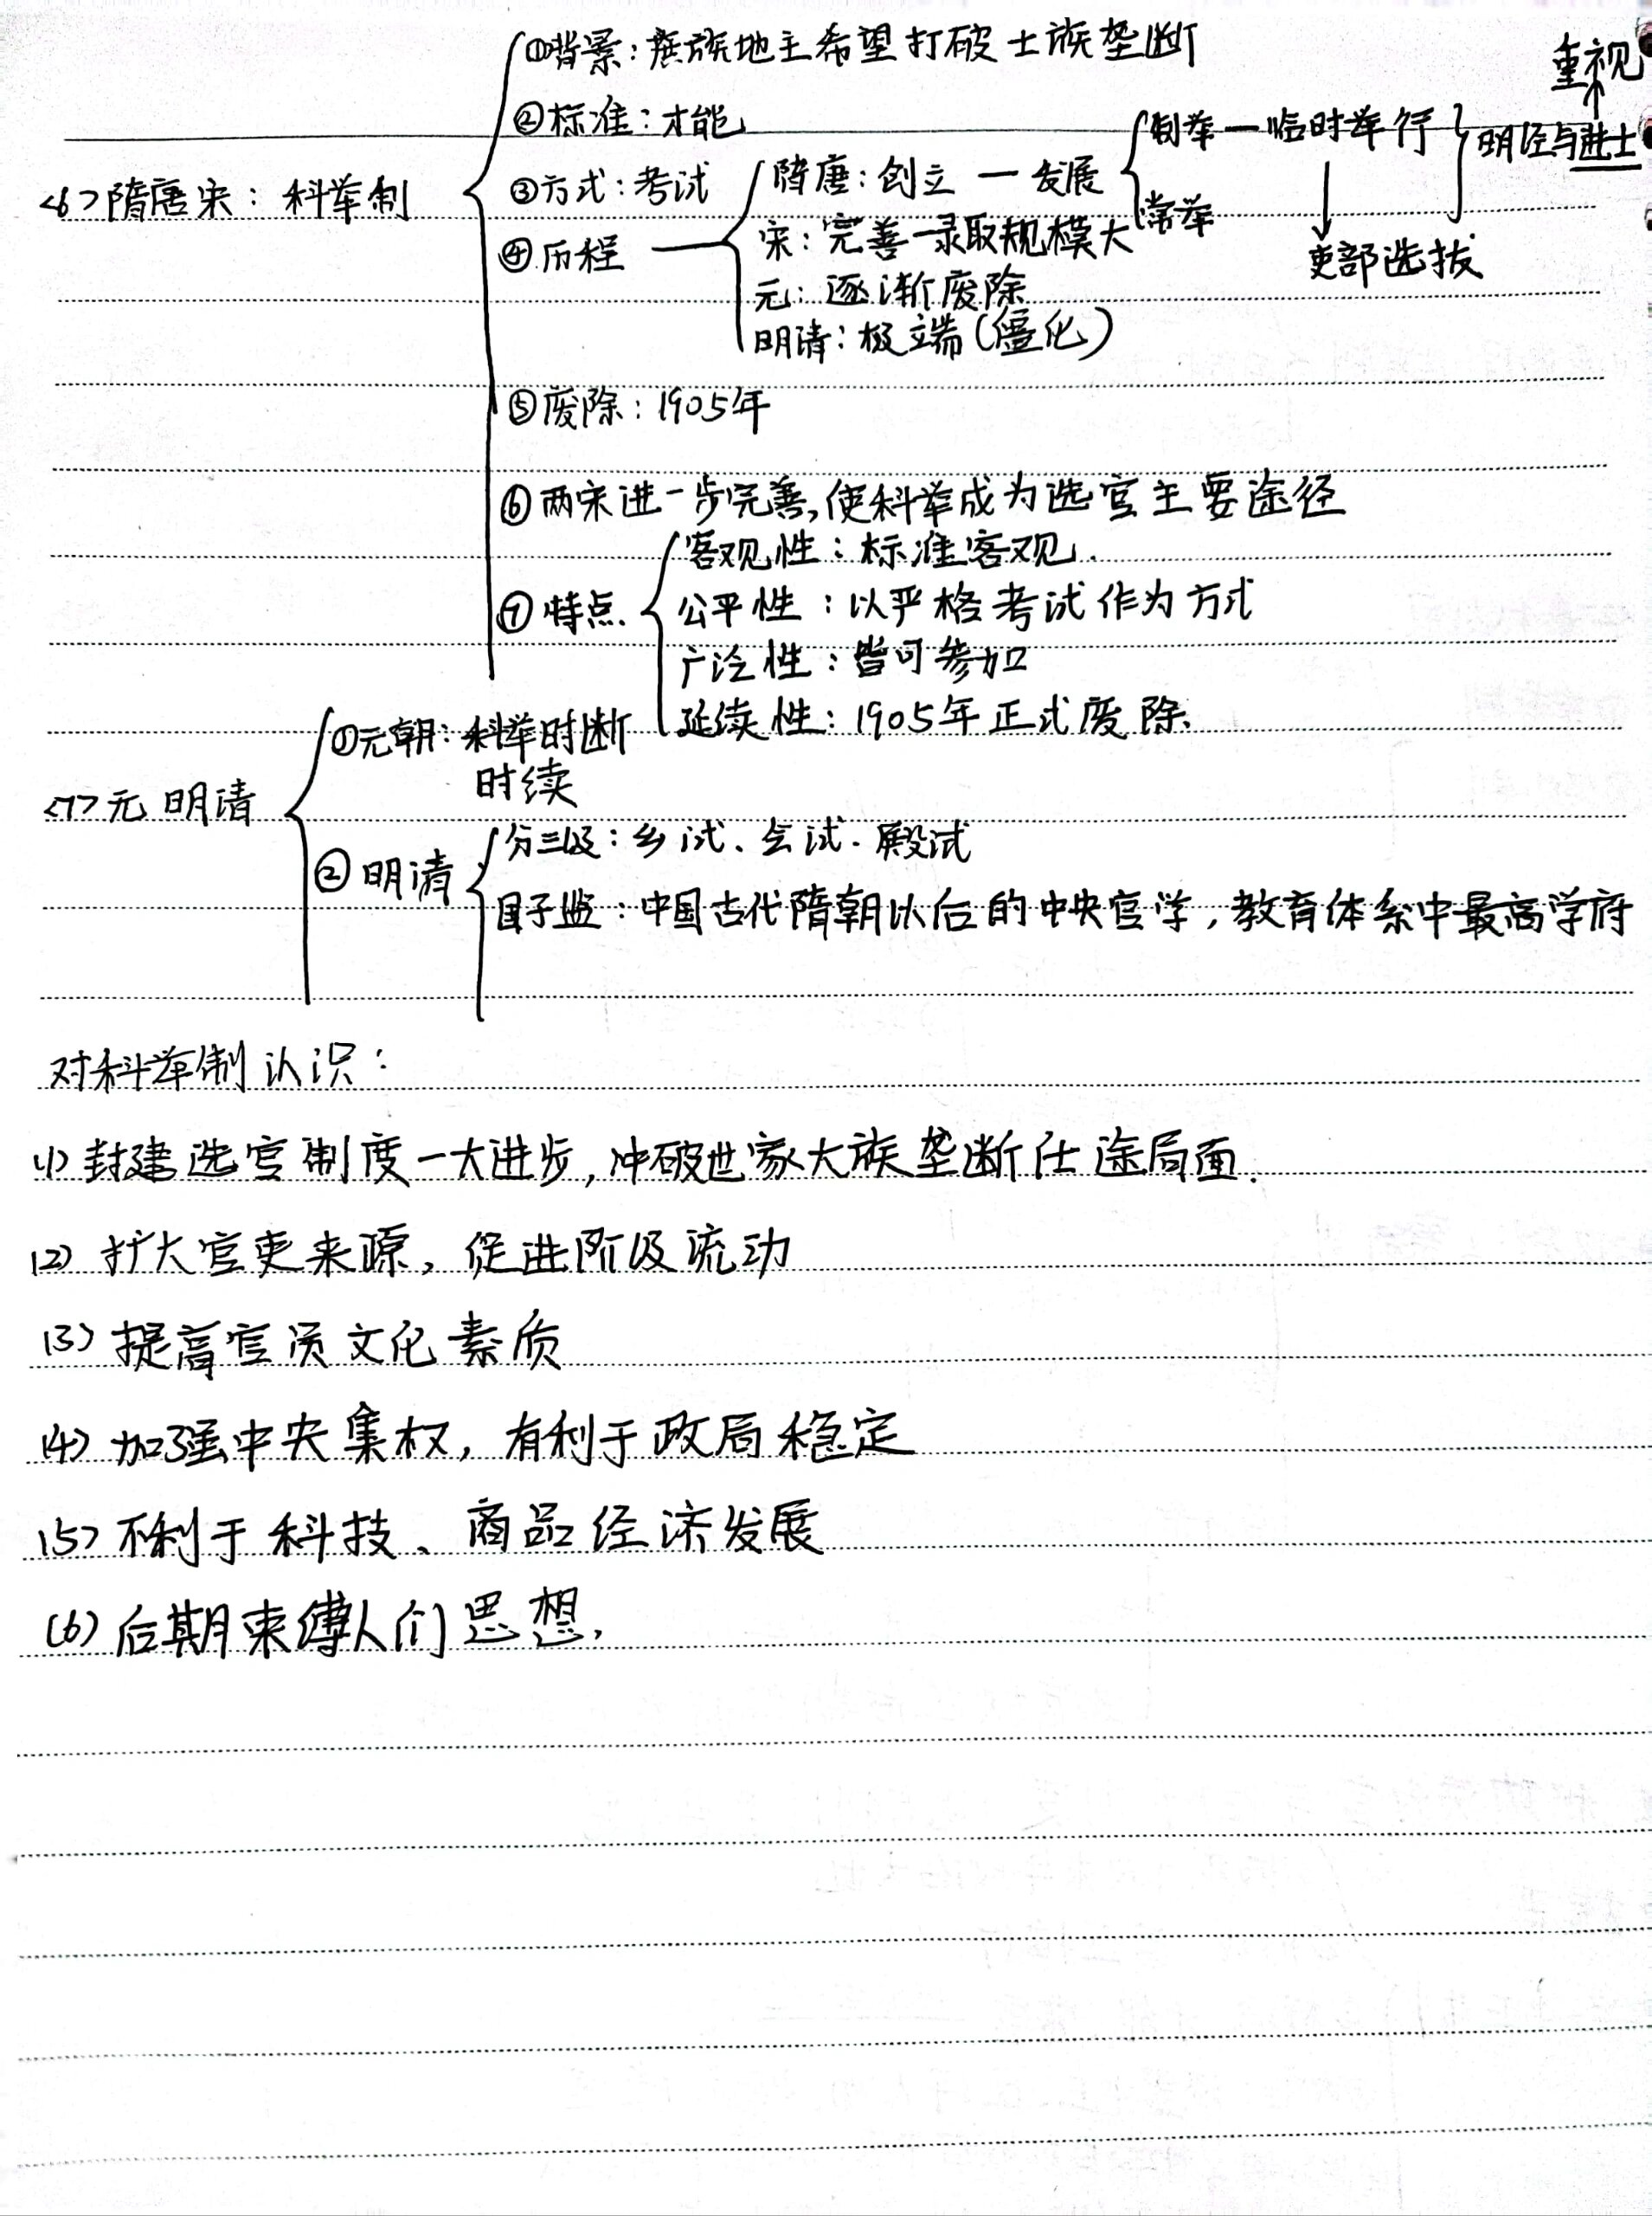 ①背景：庶族地主希望打破士族垄断
重视
②标准：才能
制举—临时举行
明经与进士
<6>隋唐宋：科举制
③方式：考试
隋唐：创立—发展
常举
④历程
宋：完善—录取规模大
吏部选拔
元：逐渐废除
明清：极端(僵化)
⑤废除：1905年
⑥两宋进一步完善,使科举成为选官主要途径
⑦特点.
客观性：标准客观.
公平性：以严格考试作为方式
广泛性：皆可参加
延续性：1905年正式废除.
<7>元明清
①元朝：科举时断
时续
②明清
分三级：乡试、会试.殿试
国子监：中国古代隋朝以后的中央官学,教育体系中最高学府
对科举制认识：
(1)封建选官制度一大进步,冲破世家大族垄断仕途局面.
(2)扩大官吏来源,促进阶级流动
(3)提高官员文化素质
(4)加强中央集权,有利于政局稳定
(5)不利于科技、商品经济发展
(6)后期束缚人们思想,